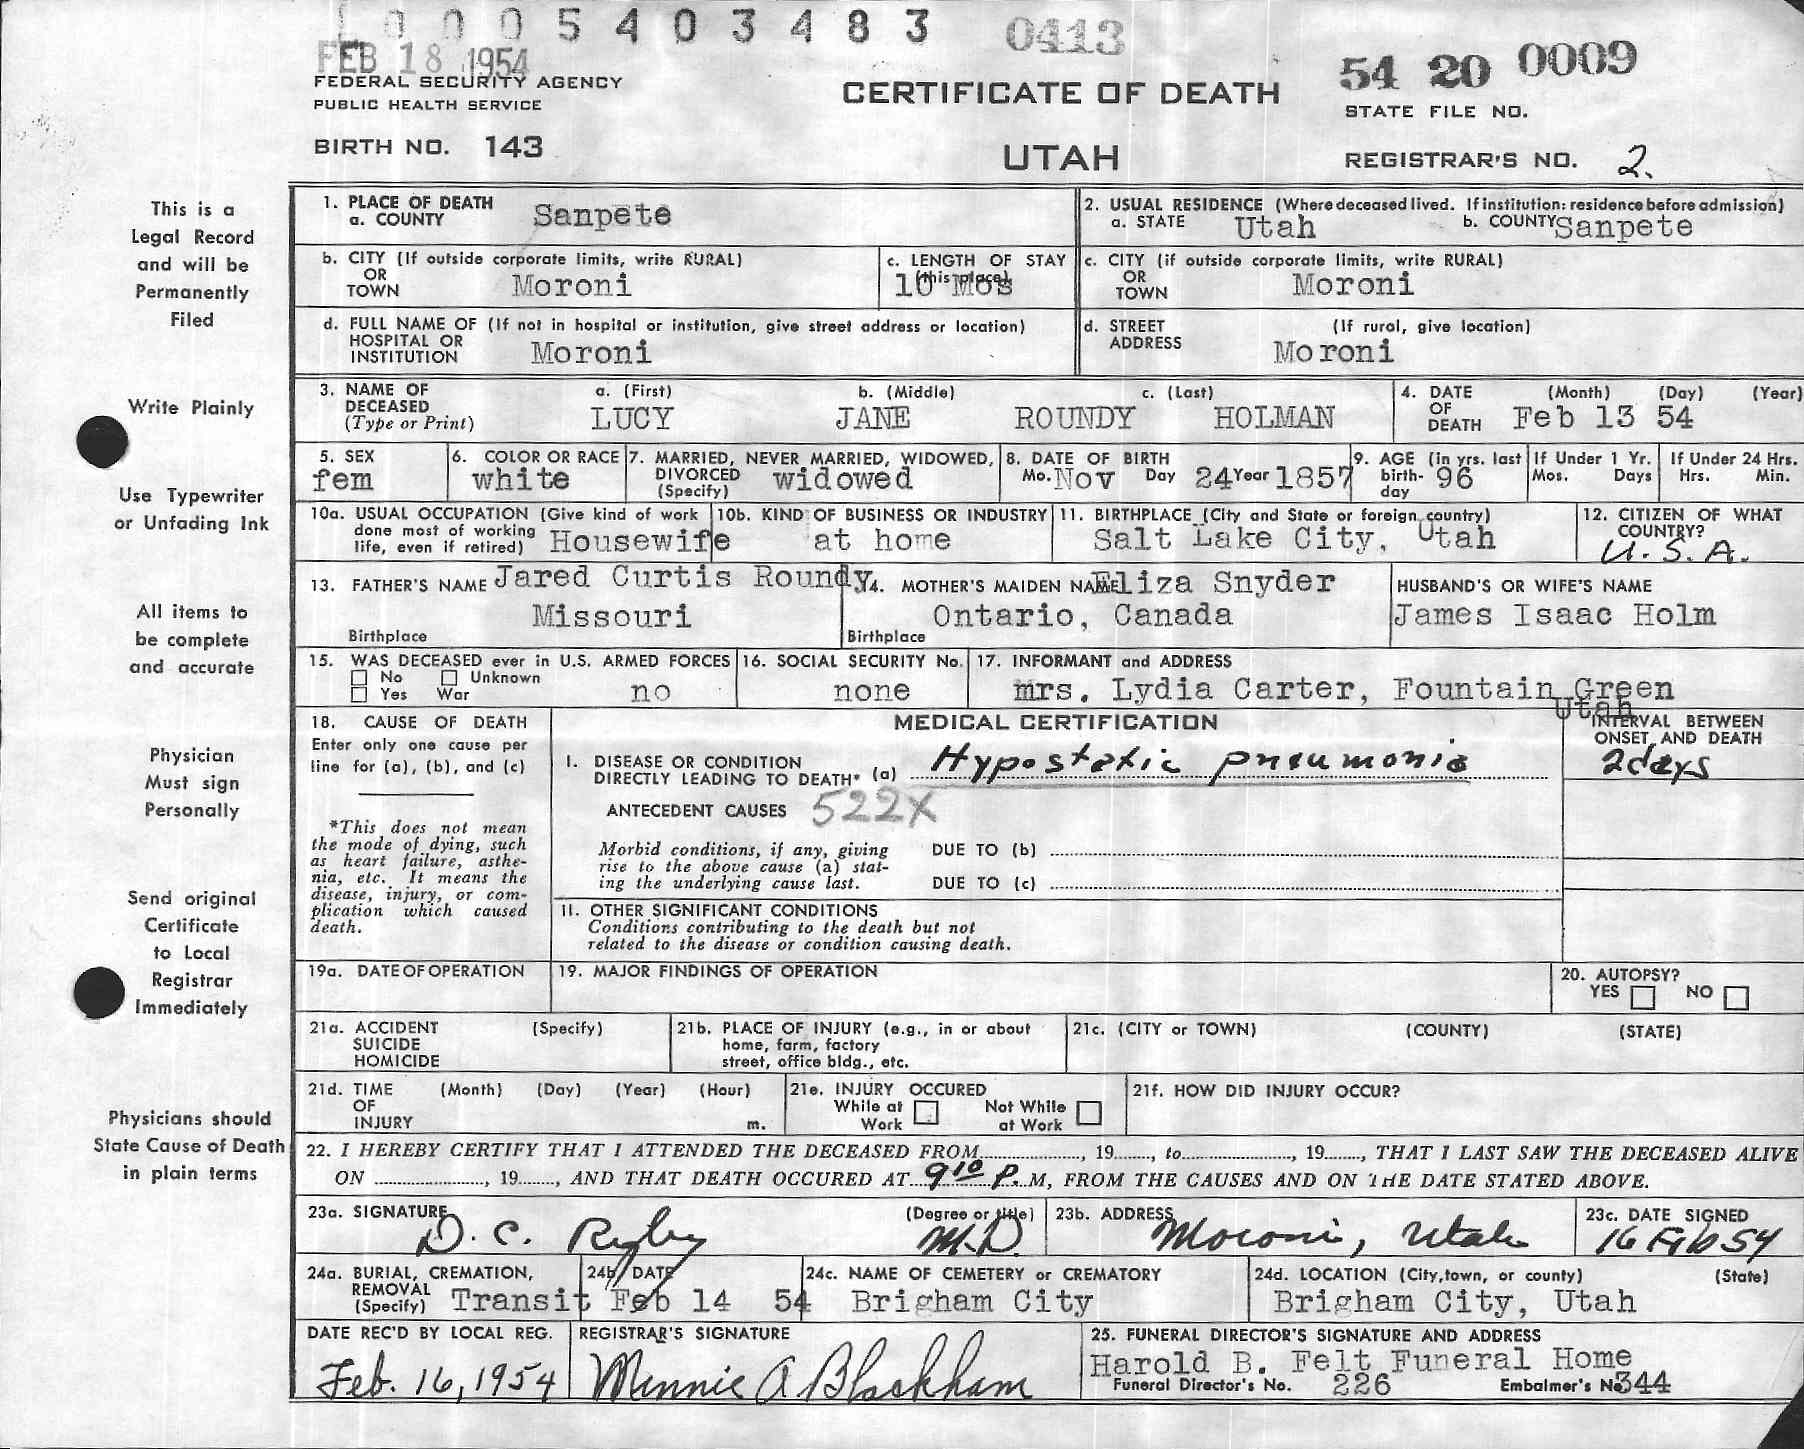 L 0 0 0 5 4 0 3 4 8 3 0413
FEB 18 1954
54 20 0009
FEDERAL SECURITY AGENCY
PUBLIC HEALTH SERVICE
CERTIFICATE OF DEATH
STATE FILE NO.
BIRTH NO. 143
UTAH
REGISTRAR'S NO. 2.
This is a
Legal Record
and will be
Permanently
Filed
Write Plainly
Use Typewriter
or Unfading Ink
All items to
be complete
and accurate
Physician
Must sign
Personally
Send original
Certificate
to Local
Registrar
Immediately
Physicians should
State Cause of Death
in plain terms
1. PLACE OF DEATH
a. COUNTY Sanpete
2. USUAL RESIDENCE (Where deceased lived. If institution: residence before admission)
a. STATE Utah b. COUNTY Sanpete
b. CITY (If outside corporate limits, write RURAL)
OR
TOWN Moroni
c. LENGTH OF STAY
(this place)
10 Mos
c. CITY (if outside corporate limits, write RURAL)
OR
TOWN Moroni
d. FULL NAME OF (If not in hospital or institution, give street address or location)
HOSPITAL OR
INSTITUTION Moroni
d. STREET (If rural, give location)
ADDRESS Moroni
3. NAME OF a. (First) b. (Middle) c. (Last)
DECEASED
(Type or Print) LUCY JANE ROUNDY HOLMAN
4. DATE (Month) (Day) (Year)
OF
DEATH Feb 13 54
5. SEX
fem
6. COLOR OR RACE
white
7. MARRIED, NEVER MARRIED, WIDOWED,
DIVORCED
(Specify) widowed
8. DATE OF BIRTH
Mo. Nov Day 24 Year 1857
9. AGE (in yrs. last
birth-
day 96
If Under 1 Yr.
Mos. Days
If Under 24 Hrs.
Hrs. Min.
10a. USUAL OCCUPATION (Give kind of work
done most of working
life, even if retired) Housewife
10b. KIND OF BUSINESS OR INDUSTRY
at home
11. BIRTHPLACE (City and State or foreign country)
Salt Lake City, Utah
12. CITIZEN OF WHAT
COUNTRY?
U. S. A.
13. FATHER'S NAME Jared Curtis Roundy
Missouri
Birthplace
14. MOTHER'S MAIDEN NAME Eliza Snyder
Ontario, Canada
Birthplace
HUSBAND'S OR WIFE'S NAME
James Isaac Holm
15. WAS DECEASED ever in U.S. ARMED FORCES
No Unknown
Yes War no
16. SOCIAL SECURITY No.
none
17. INFORMANT and ADDRESS
mrs. Lydia Carter, Fountain Green
Utah
18. CAUSE OF DEATH
Enter only one cause per
line for (a), (b), and (c)
*This does not mean
the mode of dying, such
as heart failure, asthe-
nia, etc. It means the
disease, injury, or com-
plication which caused
death.
MEDICAL CERTIFICATION
INTERVAL BETWEEN
ONSET AND DEATH
I. DISEASE OR CONDITION
DIRECTLY LEADING TO DEATH* (a) Hypostatic pneumonia
2days
ANTECEDENT CAUSES 522X
Morbid conditions, if any, giving
rise to the above cause (a) stat-
ing the underlying cause last.
DUE TO (b)
DUE TO (c)
II. OTHER SIGNIFICANT CONDITIONS
Conditions contributing to the death but not
related to the disease or condition causing death.
19a. DATE OF OPERATION
19. MAJOR FINDINGS OF OPERATION
20. AUTOPSY?
YES NO
21a. ACCIDENT (Specify)
SUICIDE
HOMICIDE
21b. PLACE OF INJURY (e.g., in or about
home, farm, factory
street, office bldg., etc.
21c. (CITY or TOWN) (COUNTY) (STATE)
21d. TIME (Month) (Day) (Year) (Hour)
OF
INJURY m.
21e. INJURY OCCURED
While at Work Not While at Work
21f. HOW DID INJURY OCCUR?
22. I HEREBY CERTIFY THAT I ATTENDED THE DECEASED FROM, 19, to, 19, THAT I LAST SAW THE DECEASED ALIVE
ON, 19, AND THAT DEATH OCCURED AT 9 10 P.M, FROM THE CAUSES AND ON THE DATE STATED ABOVE.
23a. SIGNATURE (Degree or title)
D. C. Rigby M.D.
23b. ADDRESS
Moroni, Utah
23c. DATE SIGNED
16 Feb 54
24a. BURIAL, CREMATION,
REMOVAL
(Specify) Transit
24b. DATE
Feb 14 54
24c. NAME OF CEMETERY or CREMATORY
Brigham City
24d. LOCATION (City, town, or county) (State)
Brigham City, Utah
DATE REC'D BY LOCAL REG.
Feb. 16, 1954
REGISTRAR'S SIGNATURE
Minnie A Blackham
25. FUNERAL DIRECTOR'S SIGNATURE AND ADDRESS
Harold B. Felt Funeral Home
Funeral Director's No. 226 Embalmer's No 344